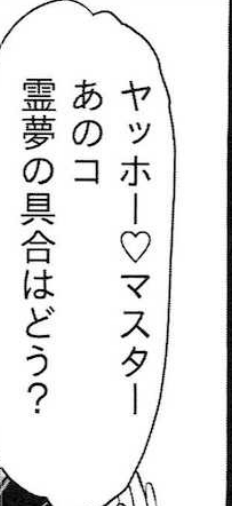 ヤッホー♡マスター
あのコ
霊夢の具合はどう？